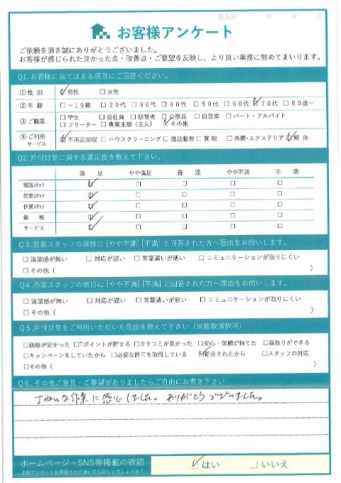 記入日 年 月 日
お客様アンケート
ご依頼を頂き誠にありがとうございました。
お客様が感じられた良かった点・改善点・ご要望を反映し、より良い業務に努めてまいります。
Q1.お客様に当てはまる項目にご回答ください。
①性別 ☑男性 □女性
②年齢 □~19歳 □20代 □30代 □40代 □50代 □60代 ☑70代 □80歳~
③ご職業 □学生 □会社員 □経営者 □公務員 □自営業 □パート・アルバイト
□フリーター □専業主婦(主夫) ☑その他
④ご利用サービス ☑不用品回収 □ハウスクリーニング □遺品整理 □買取 □外構・エクステリア ☑解体
Q2.片付け堂に関する満足度を教えて下さい。
満足 やや満足 普通 やや不満 不満
電話スタッフ ☑ □ □ □ □
営業スタッフ ☑ □ □ □ □
作業スタッフ ☑ □ □ □ □
価格 ☑ □ □ □ □
サービス ☑ □ □ □ □
Q3.営業スタッフの項目に[やや不満][不満]と回答された方へ理由をお伺いします。
□清潔感が無い □対応が遅い □言葉遣いが悪い □コミュニケーションが取りにくい
□その他( )
Q4.作業スタッフの項目に[やや不満][不満]と回答された方へ理由をお伺いします。
□清潔感が無い □対応が遅い □言葉遣いが悪い □コミュニケーションが取りにくい
□その他( )
Q5.片付け堂をご利用いただいた理由を教えて下さい(※複数選択可)
□価格が安かった □Tポイントが貯まる □クチコミが良かった □安心・信頼が持てた □買取りができる
□キャンペーンをしていたから □必要な許可を取得している ☑紹介されたから □スタッフの対応
□その他( )
Q6.その他ご意見・ご要望がありましたらご自由にお書き下さい
丁ねいな作業に感心しました。ありがとうございました。
ホームページ・SNS等掲載の確認
☑はい □いいえ